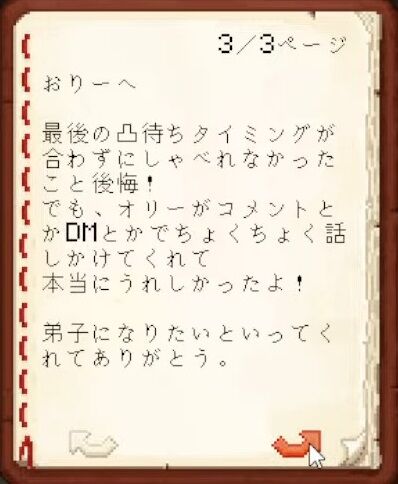 3/3ページ
おりーへ
最後の凸待ちタイミングが
合わずにしゃべれなかった
こと後悔！
でも、オリーがコメントと
かDMとかでちょくちょく話
しかけてくれて
本当にうれしかったよ！
弟子になりたいといってく
れてありがとう。